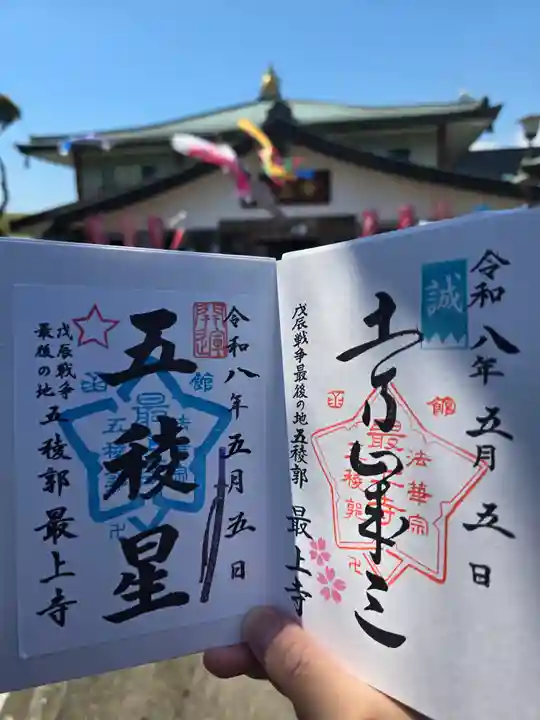 誠
令和八年五月五日
土方歳三
戊辰戦争最後の地五稜郭 最上寺
函館
法華宗
最上寺
五稜郭
卍
開運
令和八年五月五日
五稜星
戊辰戦争
最後の地 五稜郭 最上寺
函館
法華宗
最上寺
五稜郭
卍